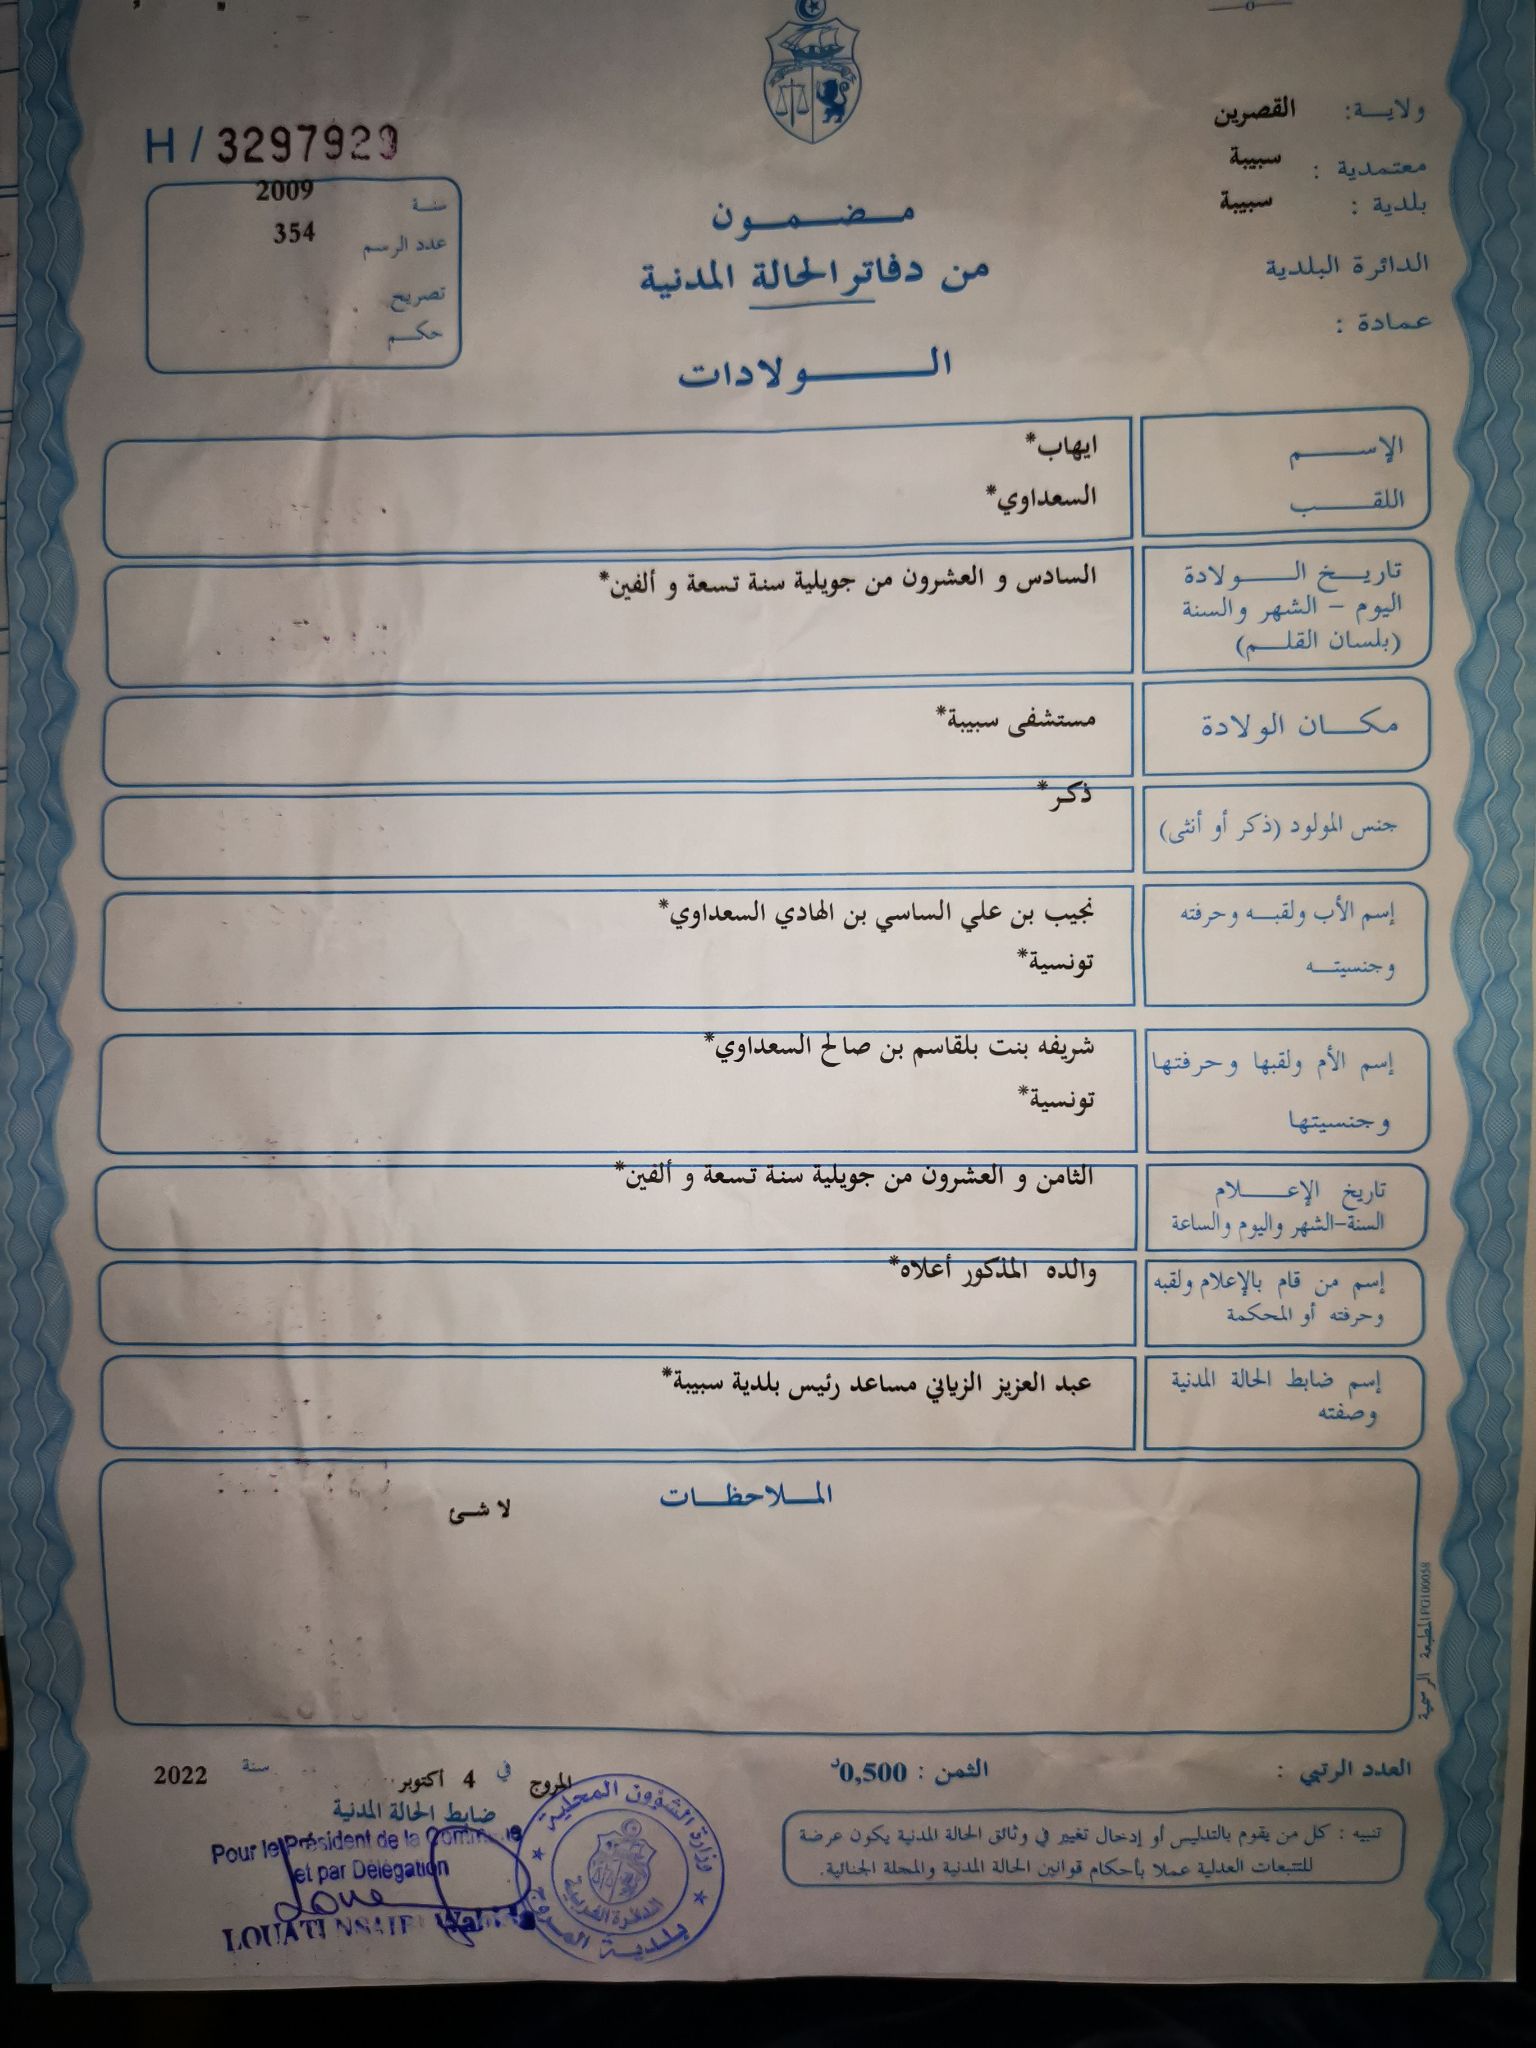 ولاية: القصرين
معتمدية : سبيبة
بلدية : سبيبة
الدائرة البلدية
عمادة :
H / 3297929
سنة 2009
عدد الرسم 354
تصريح
حكم
مضمون
من دفاتر الحالة المدنية
الولادات
الإسم ايهاب*
اللقب السعداوي*
تاريخ الولادة السادس و العشرون من جويلية سنة تسعة و ألفين*
اليوم - الشهر والسنة
(بلسان القلم)
مكان الولادة مستشفى سبيبة*
جنس المولود (ذكر أو أنثى) ذكر*
إسم الأب ولقبه وحرفته نجيب بن علي الساسي بن الهادي السعداوي*
وجنسيته تونسية*
إسم الأم ولقبها وحرفتها شريفه بنت بلقاسم بن صالح السعداوي*
وجنسيتها تونسية*
تاريخ الإعلام الثامن و العشرون من جويلية سنة تسعة و ألفين*
السنة-الشهر واليوم والساعة
إسم من قام بالإعلام ولقبه والده المذكور أعلاه*
وحرفته أو المحكمة
إسم ضابط الحالة المدنية عبد العزيز الزياني مساعد رئيس بلدية سبيبة*
وصفته
الملاحظات
لا شئ
المطبعة الرسمية
العدد الرتبي :
الثمن : 0,500د
المروج في 4 أكتوبر سنة 2022
ضابط الحالة المدنية
Pour le Président de la
et par Délégation
LOUATI
وزارة الشؤون المحلية
بلدية المروج
تنبيه : كل من يقوم بالتدليس أو إدخال تغيير في وثائق الحالة المدنية يكون عرضة
للتتبعات العدلية عملا بأحكام قوانين الحالة المدنية والمجلة الجنائية.